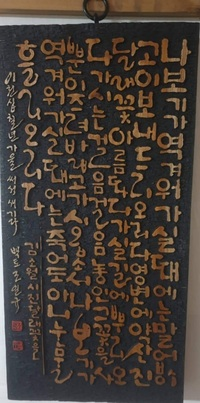 나보기가역겨워가실때에는말없이
고이보내드리오리다영변에약산진
달래꽃아름따다가실길에뿌리오리
다가시는걸음걸음놓인그꽃을사
뿐이즈려밟고가시옵소서나보기가
역겨워가실때에는죽어도아니눈물
흘리오리다
김소월 시 진달래꽃을
이천십칠년 가을 써서 새기다